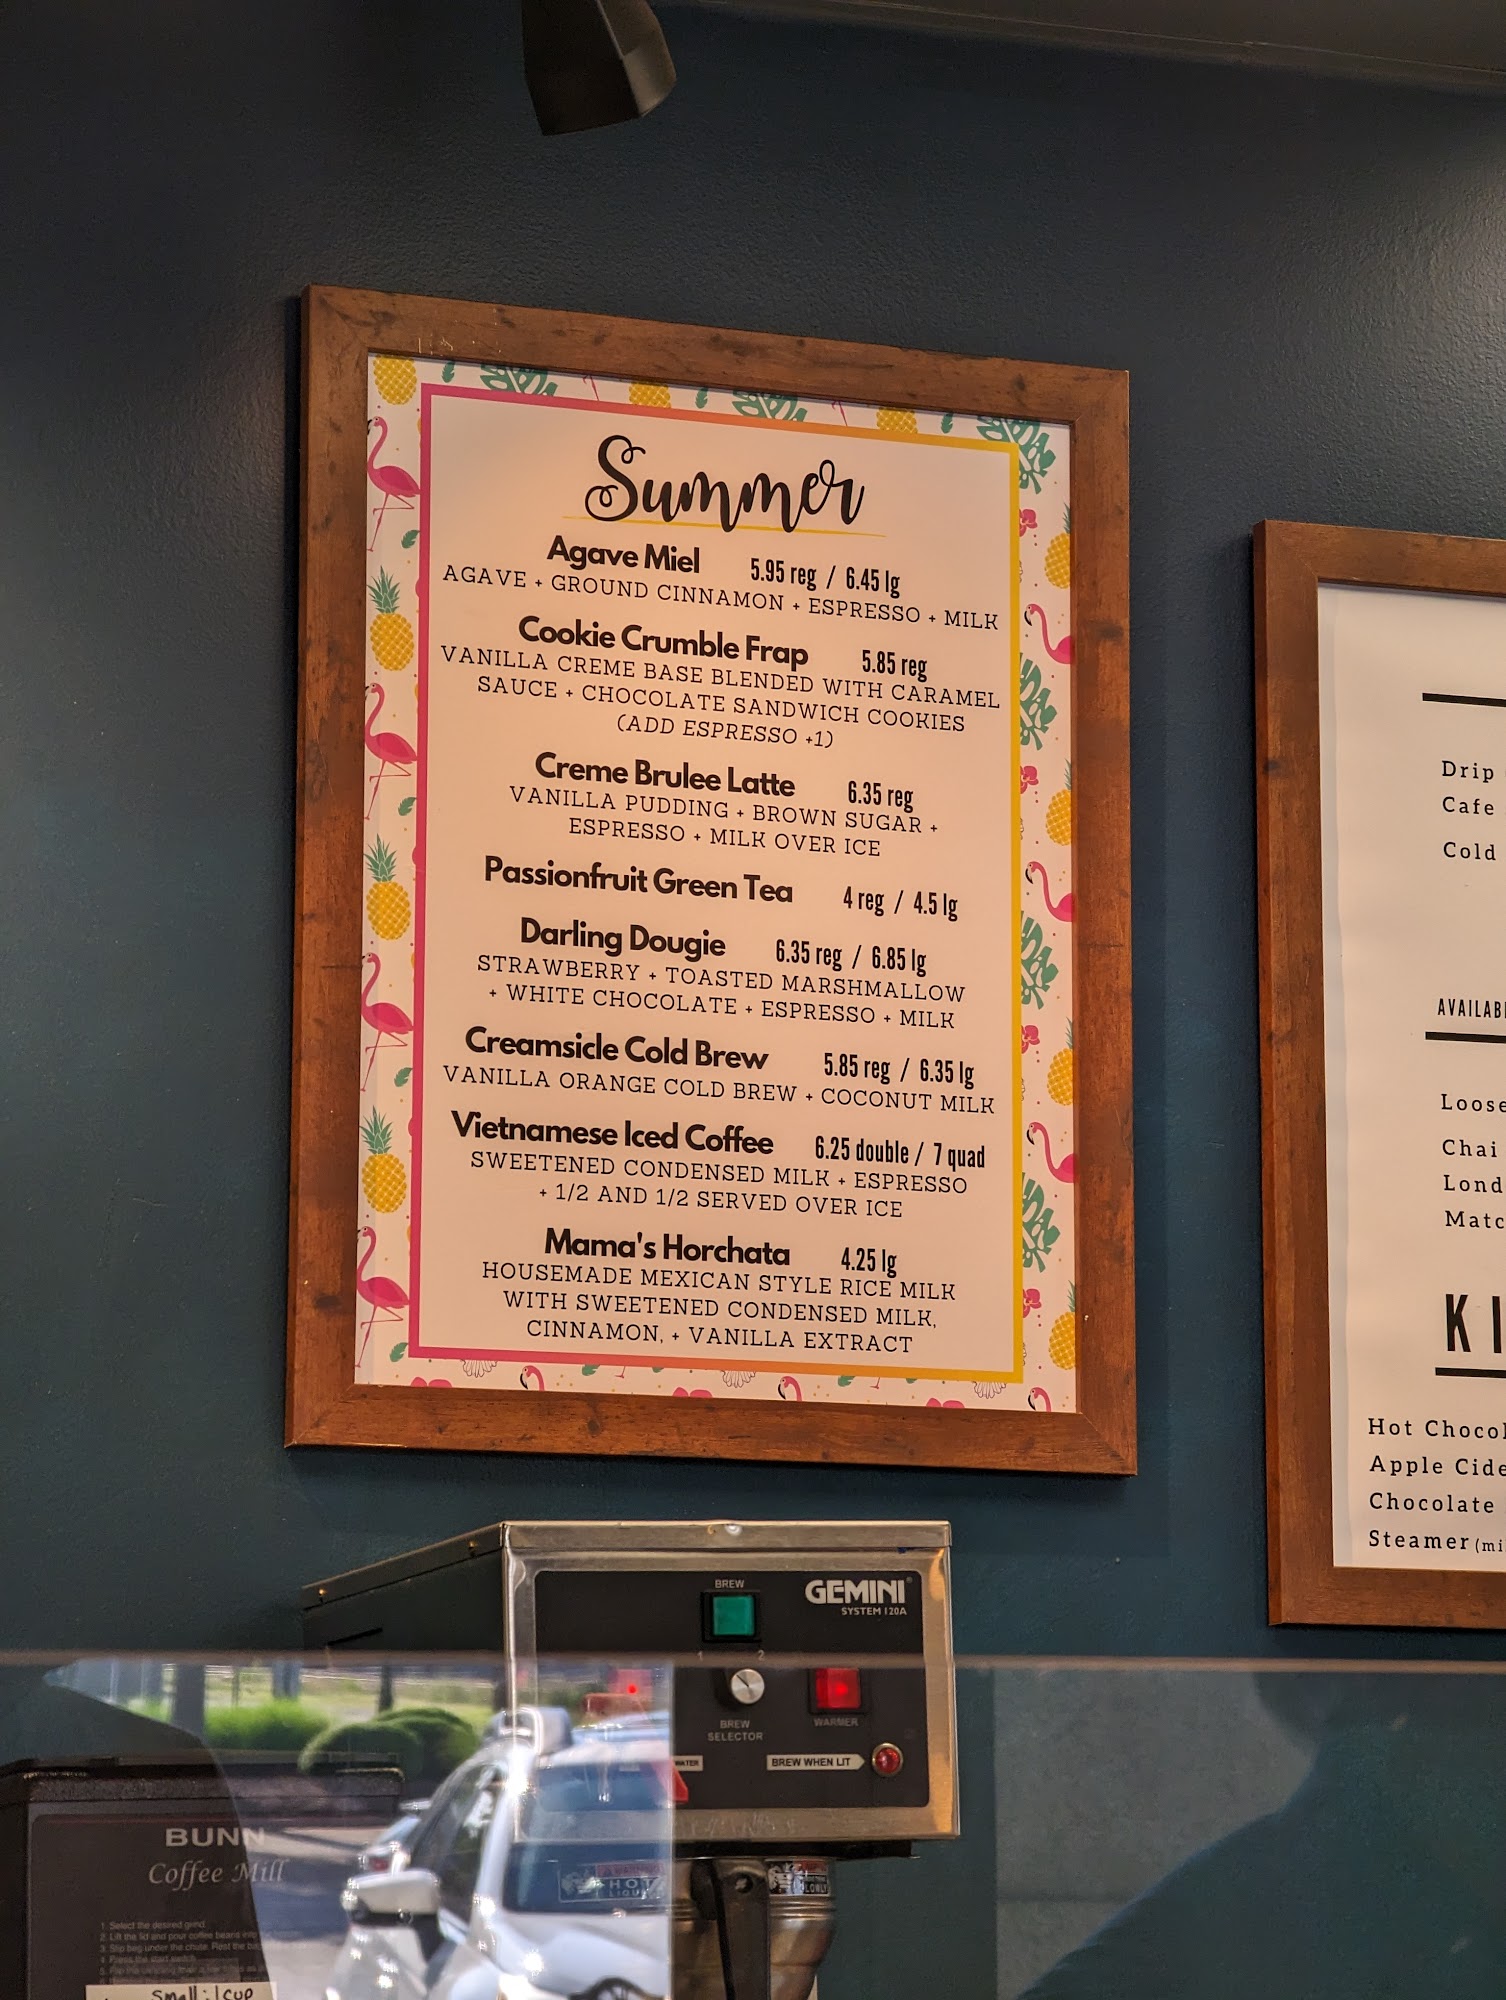 Summer
Agave Miel 5.95 reg / 6.45 lg
AGAVE + GROUND CINNAMON + ESPRESSO + MILK
Cookie Crumble Frap 5.85 reg
VANILLA CREME BASE BLENDED WITH CARAMEL
SAUCE + CHOCOLATE SANDWICH COOKIES
(ADD ESPRESSO +1)
Creme Brulee Latte 6.35 reg
VANILLA PUDDING + BROWN SUGAR +
ESPRESSO + MILK OVER ICE
Passionfruit Green Tea 4 reg / 4.5 lg
Darling Dougie 6.35 reg / 6.85 lg
STRAWBERRY + TOASTED MARSHMALLOW
+ WHITE CHOCOLATE + ESPRESSO + MILK
Creamsicle Cold Brew 5.85 reg / 6.35 lg
VANILLA ORANGE COLD BREW + COCONUT MILK
Vietnamese Iced Coffee 6.25 double / 7 quad
SWEETENED CONDENSED MILK + ESPRESSO
+ 1/2 AND 1/2 SERVED OVER ICE
Mama's Horchata 4.25 lg
HOUSEMADE MEXICAN STYLE RICE MILK
WITH SWEETENED CONDENSED MILK,
CINNAMON, + VANILLA EXTRACT
Drip
Cafe
Cold
AVAILAB
Loose
Chai
Lond
Matc
KI
Hot Chocol
Apple Cide
Chocolate
Steamer (mi
BREW
GEMINI
SYSTEM 120A
1 2
BREW
SELECTOR
WARMER
WATER
BREW WHEN LIT
BUNN
Coffee Mill
1. Select the desired grind.
2. Lift the lid and pour coffee beans into
3. Slip bag under the chute. Rest the
4. Press the start switch
HOT
LIQU
Small: 1 cup